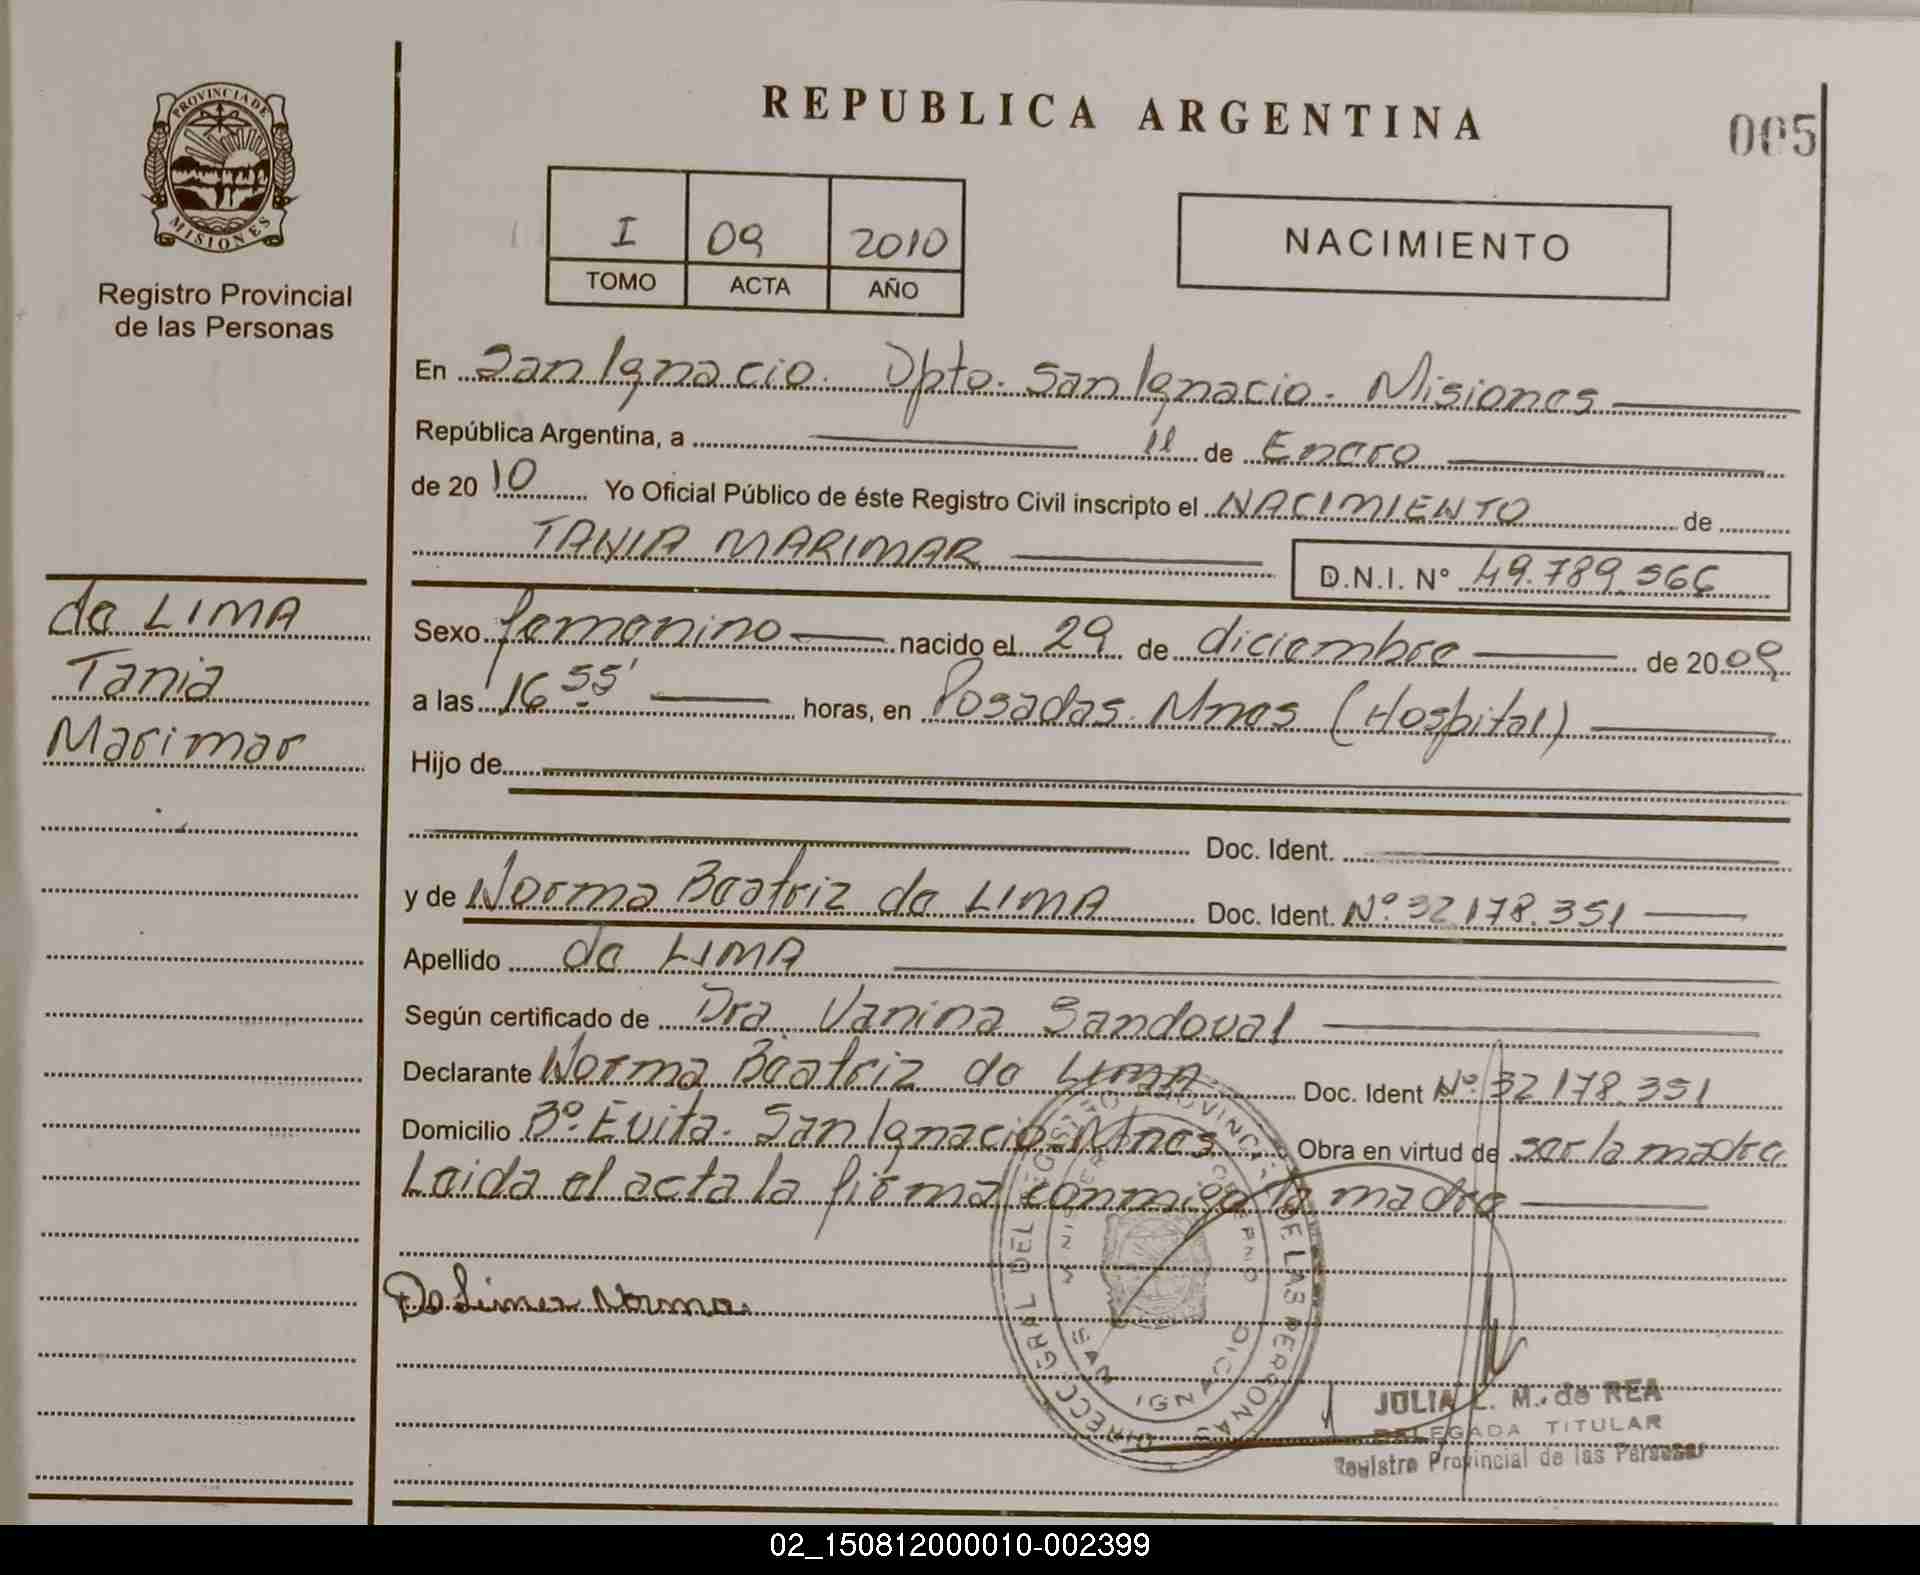 REPUBLICA ARGENTINA
005
PROVINCIA DE
MISIONES
Registro Provincial
de las Personas
I 09 2010
TOMO ACTA AÑO
NACIMIENTO
En San Ignacio. Dpto. San Ignacio. Misiones
República Argentina, a 11 de Enero
de 2010 Yo Oficial Público de éste Registro Civil inscripto el NACIMIENTO de
TANIA MARIMAR
D.N.I. Nº 49.789.566
de LIMA
Tania
Marimar
Sexo femenino nacido el 29 de diciembre de 2009
a las 16 55' horas, en Posadas. Mnes (Hospital)
Hijo de
Doc. Ident.
y de Norma Beatriz de LIMA Doc. Ident. Nº 32 178.351
Apellido de LIMA
Según certificado de Dra. Vanina Sandoval
Declarante Norma Beatriz de LIMA Doc. Ident Nº 32 178.351
Domicilio Bº Evita. San Ignacio. Mnes Obra en virtud de ser la madre
Leida el acta la firma conmigo la madre
De Lima Norma.
DIRECC. GRAL DEL REGISTRO PROVINCIAL DE LAS PERSONAS
SAN IGNACIO
JULIA L. M. de REA
DELEGADA TITULAR
Registro Provincial de las Personas
02_150812000010-002399